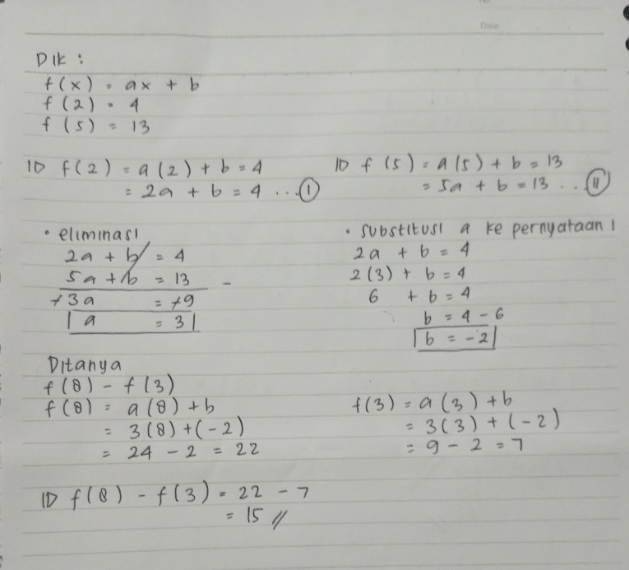 Dik :
f(x) = ax + b
f(2) = 4
f(5) = 13
ID f(2) = a(2) + b = 4
= 2a + b = 4 ... (I)
ID f(5) = a(5) + b = 13
= 5a + b = 13 ... (II)
• eliminasi
2a + b = 4
5a + b = 13 -
+3a = +9
a = 3
• substitusi a ke pernyataan 1
2a + b = 4
2(3) + b = 4
6 + b = 4
b = 4 - 6
b = -2
Ditanya
f(8) - f(3)
f(8) = a(8) + b
= 3(8) + (-2)
= 24 - 2 = 22
f(3) = a(3) + b
= 3(3) + (-2)
= 9 - 2 = 7
ID f(8) - f(3) = 22 - 7
= 15 //